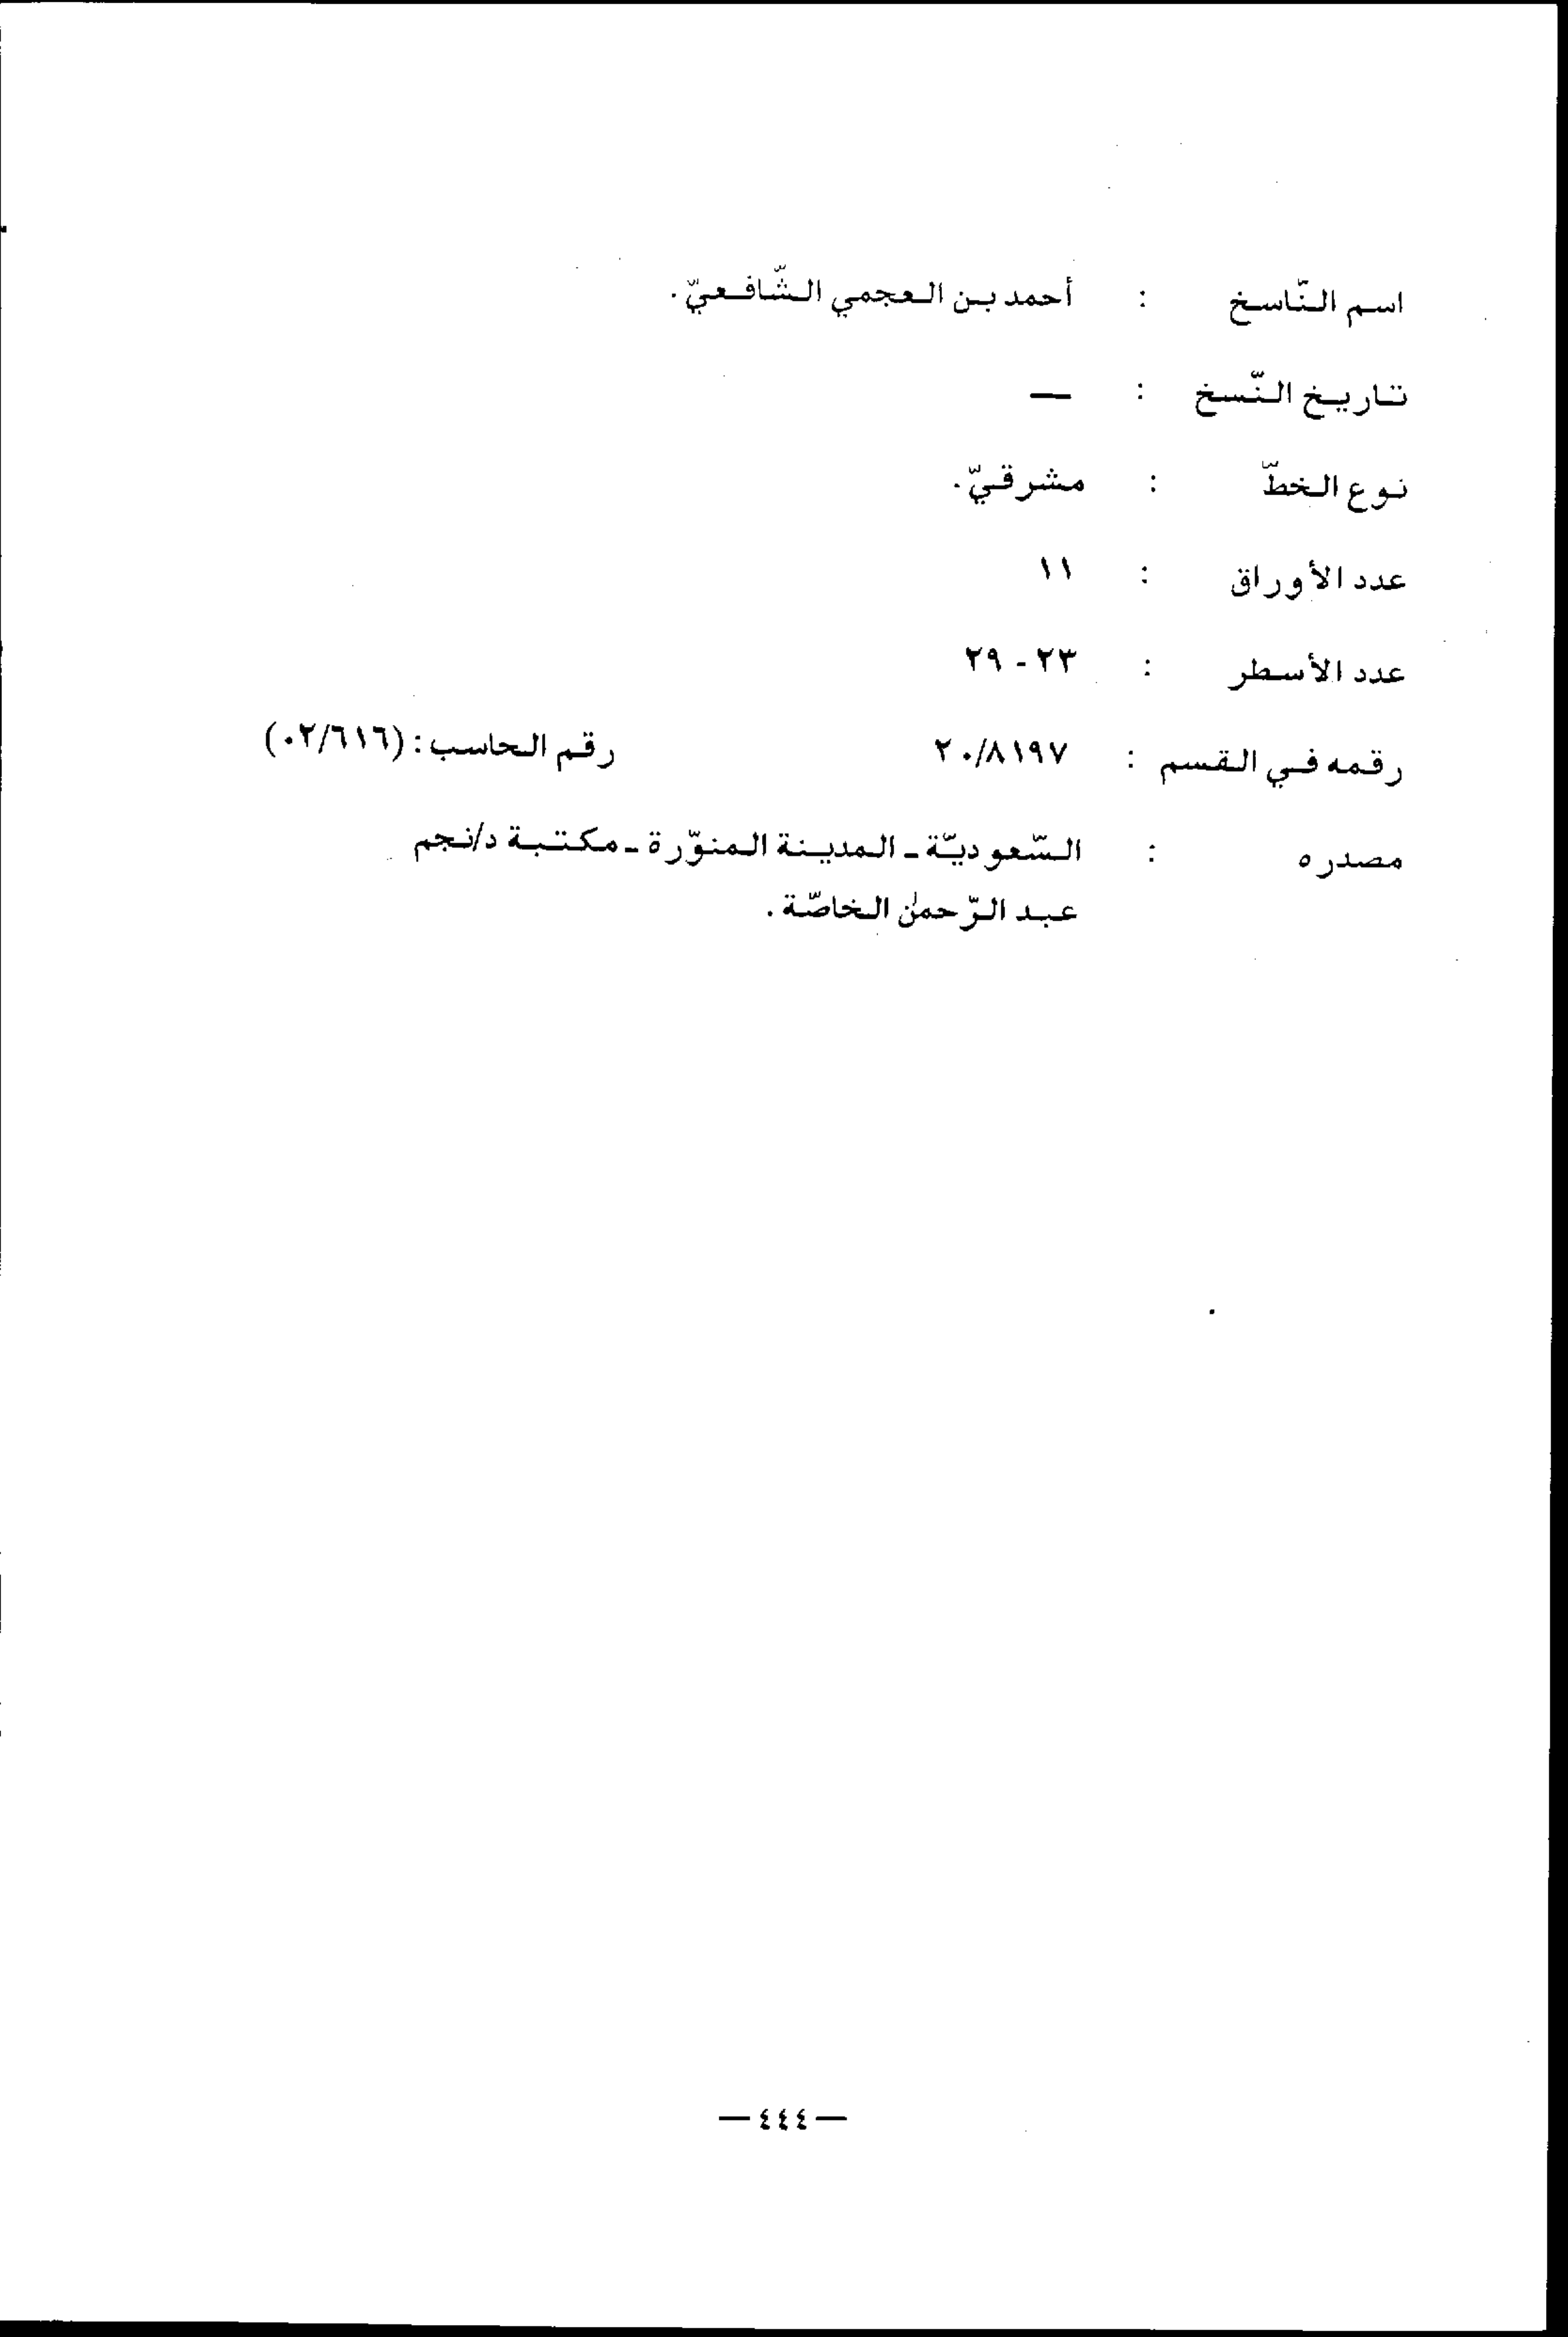 اسم النّاسخ : أحمد بن العجمي الشّافعيّ.
تاريخ النّسخ : —
نوع الخطّ : مشرقيّ.
عدد الأوراق : ١١
عدد الأسطر : ٢٣ - ٢٩
رقمه في القسم : ٢٠/٨١٩٧ رقم الحاسب : (٠٢/٦١٦)
مصدره : السّعوديّة - المدينة المنوّرة - مكتبة د/نجم
عبد الرّحمٰن الخاصّة .
— ٤٤٤ —